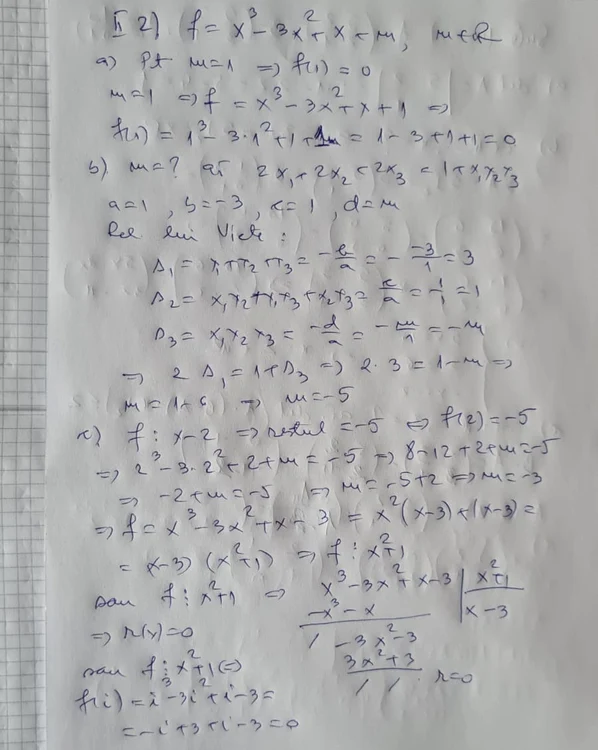 II 2) f = x³ - 3x² + x + m, m ∈ R
a) Pt m=1 ⇒ f(1) = 0
m=1 ⇒ f = x³ - 3x² + x + 1 ⇒
f(1) = 1³ - 3·1² + 1 + 1 = 1 - 3 + 1 + 1 = 0
b) m=? aî 2x₁ + 2x₂ + 2x₃ = 1 + x₁x₂x₃
a=1, b=-3, c=1, d=m
Rel lui Viete:
s₁ = x₁+x₂+x₃ = -b/a = - -3/1 = 3
s₂ = x₁x₂+x₁x₃+x₂x₃ = c/a = 1/1 = 1
s₃ = x₁x₂x₃ = -d/a = -m/1 = -m
⇒ 2s₁ = 1+s₃ ⇒ 2·3 = 1-m ⇒
m = 1-6 ⇒ m = -5
c) f : x-2 ⇒ restul = -5 ⇔ f(2) = -5
⇒ 2³ - 3·2² + 2 + m = -5 ⇒ 8-12+2+m = -5
⇒ -2+m = -5 ⇒ m = -5+2 ⇒ m = -3
⇒ f = x³ - 3x² + x - 3 = x²(x-3) + (x-3) =
= (x-3)(x²+1) ⇒ f ⋮ x²+1
sau f ⋮ x²+1 ⇒ x³ - 3x² + x - 3 | x²+1
-x³ - x | x-3
⇒ r(x) = 0 / -3x² - 3
3x² + 3
sau f ⋮ x²+1 ⇔ / / r=0
f(i) = i³ - 3i² + i - 3 =
= -i + 3 + i - 3 = 0